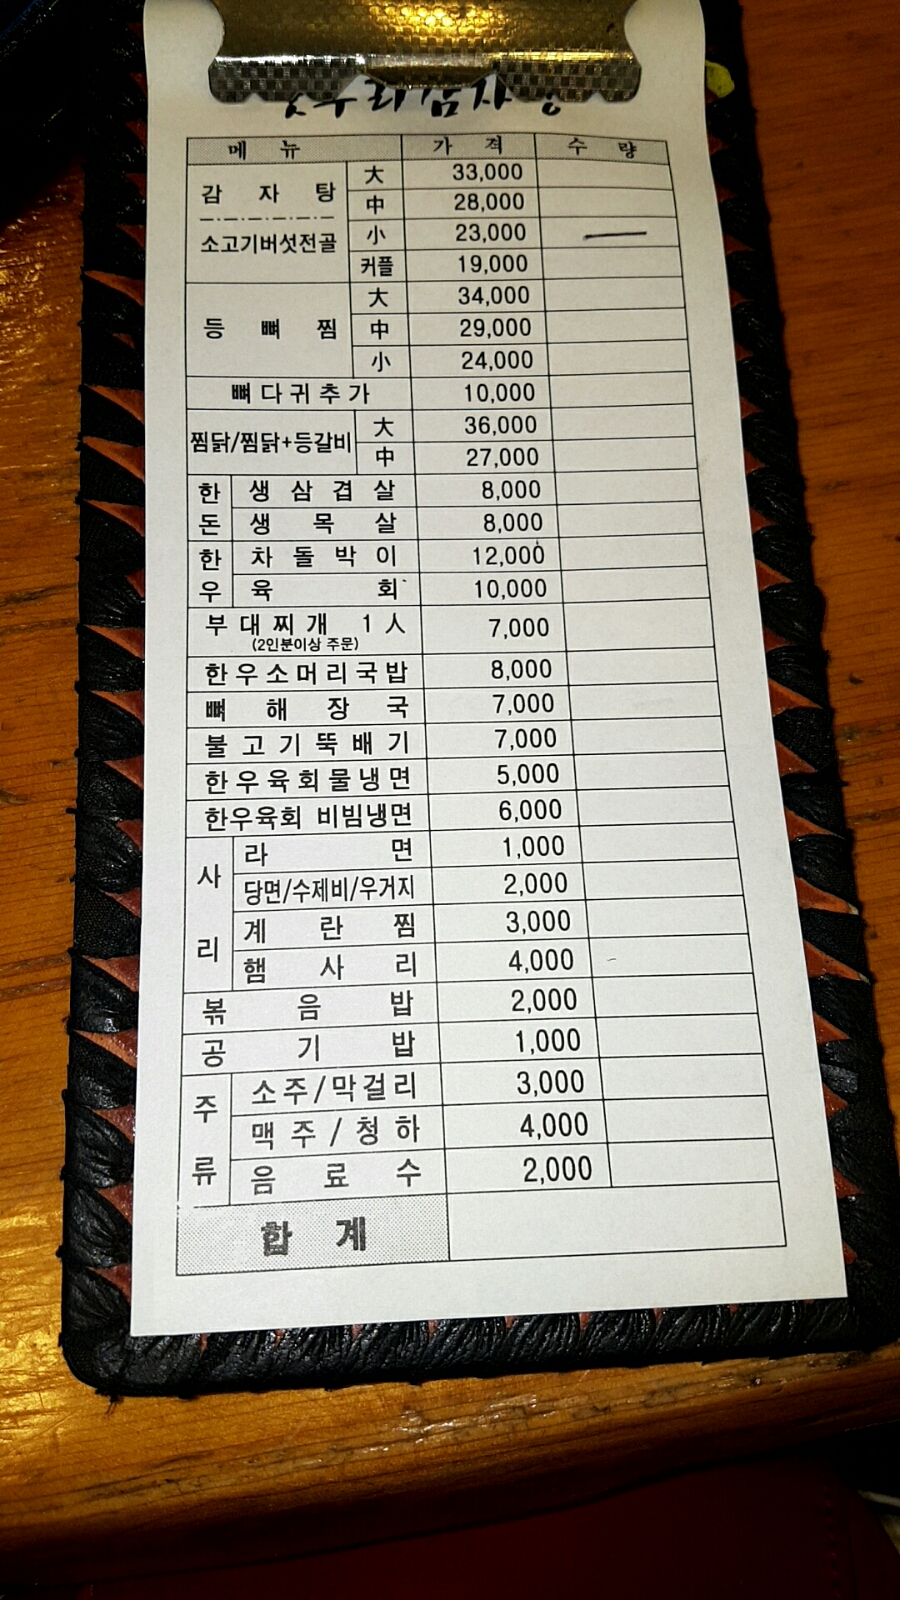 우리감자
메뉴 가격 수량
감자탕 大 33,000
中 28,000
소고기버섯전골 小 23,000 一
커플 19,000
등뼈찜 大 34,000
中 29,000
小 24,000
뼈다귀추가 10,000
찜닭/찜닭+등갈비 大 36,000
中 27,000
한돈 생삼겹살 8,000
생목살 8,000
한우 차돌박이 12,000
육회 10,000
부대찌개 1人 7,000
(2인분이상 주문)
한우소머리국밥 8,000
뼈해장국 7,000
불고기뚝배기 7,000
한우육회물냉면 5,000
한우육회 비빔냉면 6,000
사리 라면 1,000
당면/수제비/우거지 2,000
계란찜 3,000
햄사리 4,000
볶음밥 2,000
공기밥 1,000
주류 소주/막걸리 3,000
맥주/청하 4,000
음료수 2,000
합계